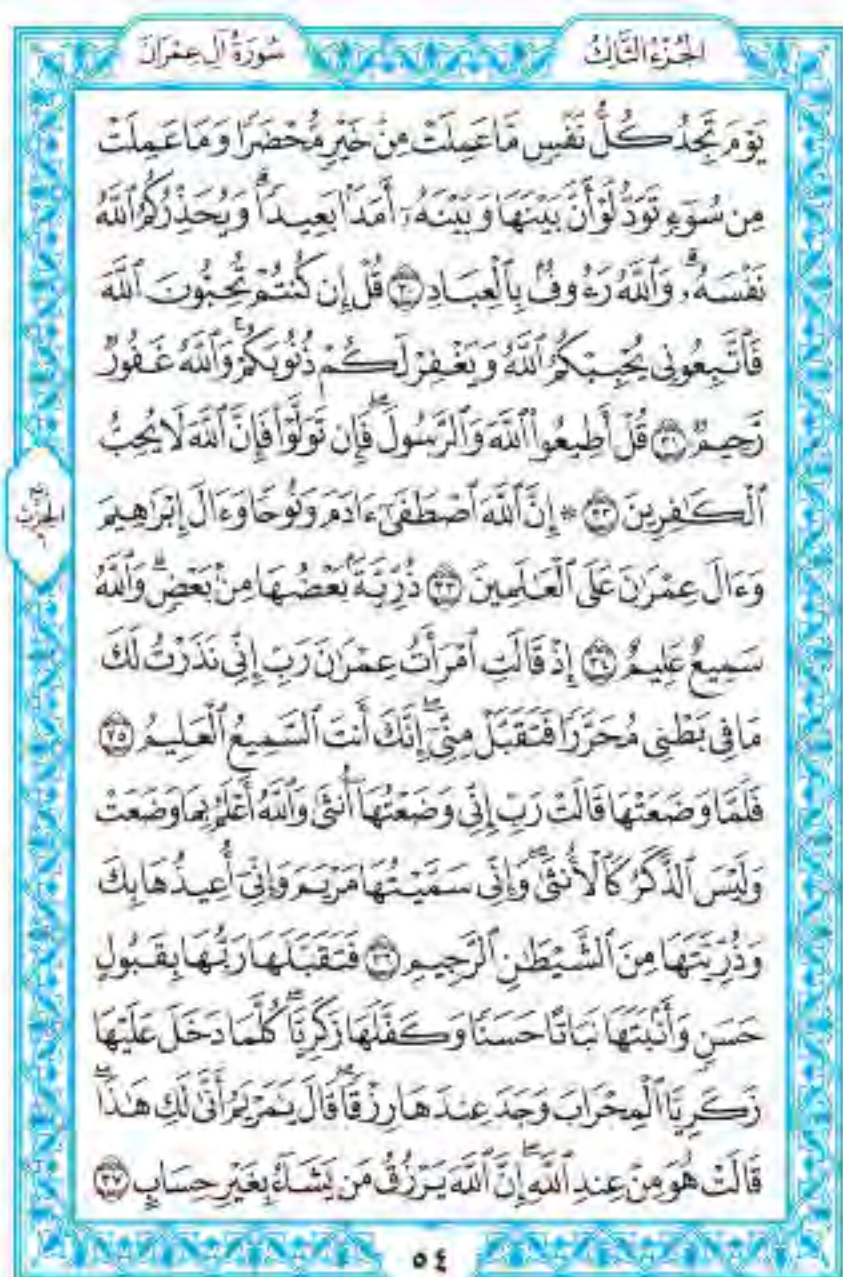 الجُزْءُ الثَّالِثُ
سُورَةُ آلِ عِمْرَانَ
يَوْمَ تَجِدُ كُلُّ نَفْسٍ مَّا عَمِلَتْ مِنْ خَيْرٍ مُّحْضَرًا وَمَا عَمِلَتْ
مِن سُوٓءٍ تَوَدُّ لَوْ أَنَّ بَيْنَهَا وَبَيْنَهُۥٓ أَمَدًۢا بَعِيدًاۗ وَيُحَذِّرُكُمُ ٱللَّهُ
نَفْسَهُۥۗ وَٱللَّهُ رَءُوفٌۢ بِٱلْعِبَادِ ٣٠ قُلْ إِن كُنتُمْ تُحِبُّونَ ٱللَّهَ
فَٱتَّبِعُونِى يُحْبِبْكُمُ ٱللَّهُ وَيَغْفِرْ لَكُمْ ذُنُوبَكُمْۗ وَٱللَّهُ غَفُورٌ
رَّحِيمٌ ٣١ قُلْ أَطِيعُوا۟ ٱللَّهَ وَٱلرَّسُولَۖ فَإِن تَوَلَّوْا۟ فَإِنَّ ٱللَّهَ لَا يُحِبُّ
ٱلْكَـٰفِرِينَ ٣٢ ۞ إِنَّ ٱللَّهَ ٱصْطَفَىٰٓ ءَادَمَ وَنُوحًا وَءَالَ إِبْرَٰهِيمَ
وَءَالَ عِمْرَٰنَ عَلَى ٱلْعَـٰلَمِينَ ٣٣ ذُرِّيَّةًۢ بَعْضُهَا مِنۢ بَعْضٍۗ وَٱللَّهُ
سَمِيعٌ عَلِيمٌ ٣٤ إِذْ قَالَتِ ٱمْرَأَتُ عِمْرَٰنَ رَبِّ إِنِّى نَذَرْتُ لَكَ
مَا فِى بَطْنِى مُحَرَّرًا فَتَقَبَّلْ مِنِّىٓۖ إِنَّكَ أَنتَ ٱلسَّمِيعُ ٱلْعَلِيمُ ٣٥
فَلَمَّا وَضَعَتْهَا قَالَتْ رَبِّ إِنِّى وَضَعْتُهَآ أُنثَىٰ وَٱللَّهُ أَعْلَمُ بِمَا وَضَعَتْ
وَلَيْسَ ٱلذَّكَرُ كَٱلْأُنثَىٰۖ وَإِنِّى سَمَّيْتُهَا مَرْيَمَ وَإِنِّىٓ أُعِيذُهَا بِكَ
وَذُرِّيَّتَهَا مِنَ ٱلشَّيْطَـٰنِ ٱلرَّجِيمِ ٣٦ فَتَقَبَّلَهَا رَبُّهَا بِقَبُولٍ
حَسَنٍ وَأَنۢبَتَهَا نَبَاتًا حَسَنًا وَكَفَّلَهَا زَكَرِيَّاۖ كُلَّمَا دَخَلَ عَلَيْهَا
زَكَرِيَّا ٱلْمِحْرَابَ وَجَدَ عِندَهَا رِزْقًاۖ قَالَ يَـٰمَرْيَمُ أَنَّىٰ لَكِ هَـٰذَاۖ
قَالَتْ هُوَ مِنْ عِندِ ٱللَّهِۖ إِنَّ ٱللَّهَ يَرْزُقُ مَن يَشَآءُ بِغَيْرِ حِسَابٍ ٣٧
الحِزْبُ
٥٤